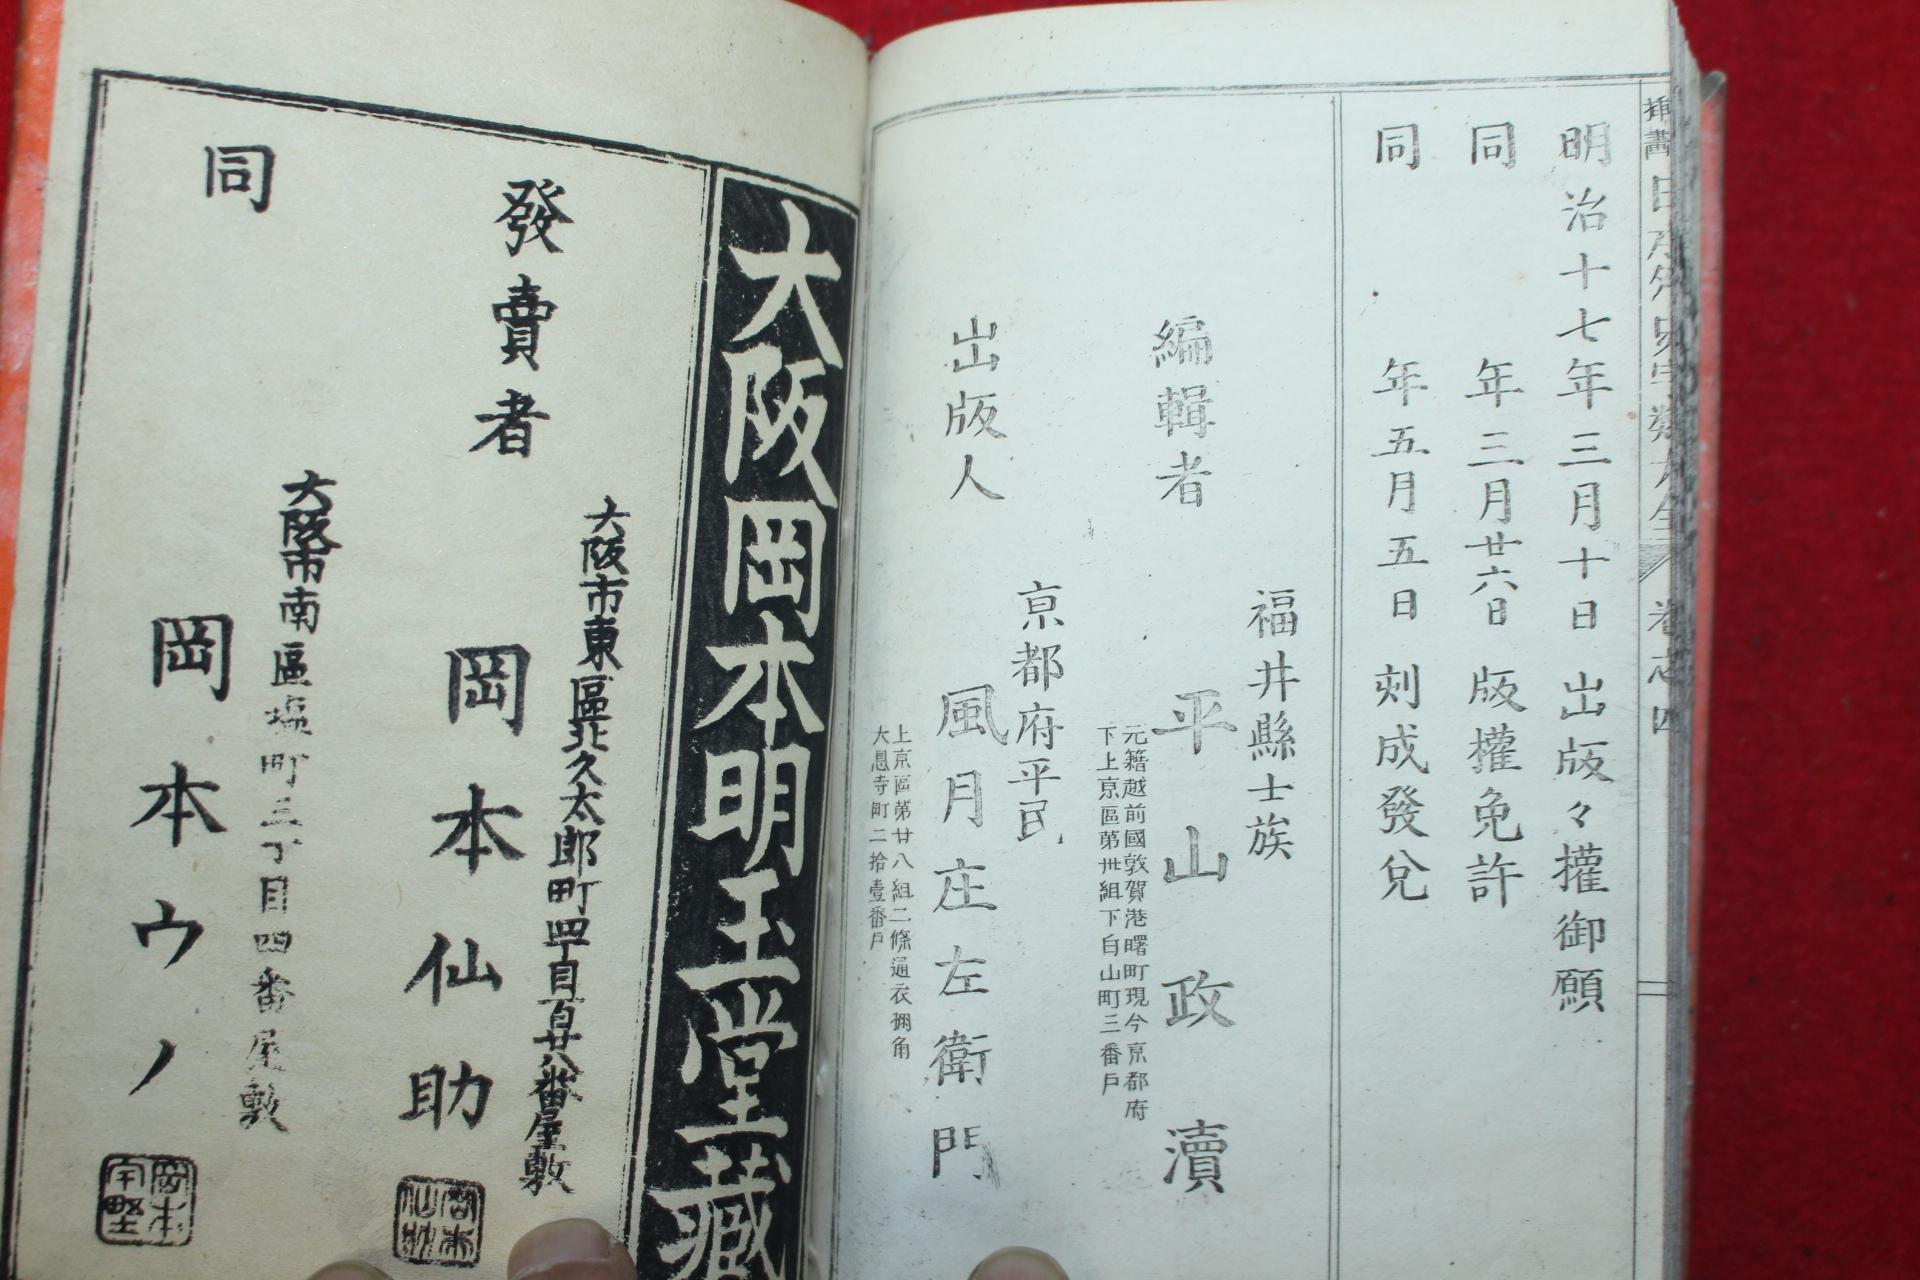 明治十七年三月十日出版々權御願
同年三月廿六日版權免許
同年五月五日刻成發兌
編輯者
福井縣士族
平山政瀆
元籍越前國敦賀港曙町現今京都府
下上京區第卅組下白山町三番戶
出版人
京都府平民
風月庄左衛門
上京區第廿八組二條通衣棚角
大恩寺町二拾壹番戶
大阪岡本明玉堂藏
發賣者
大阪市東區北久太郎町四丁目百廿八番屋敷
岡本仙助
同
大阪市南區塩町三丁目四番屋敷
岡本ウノ